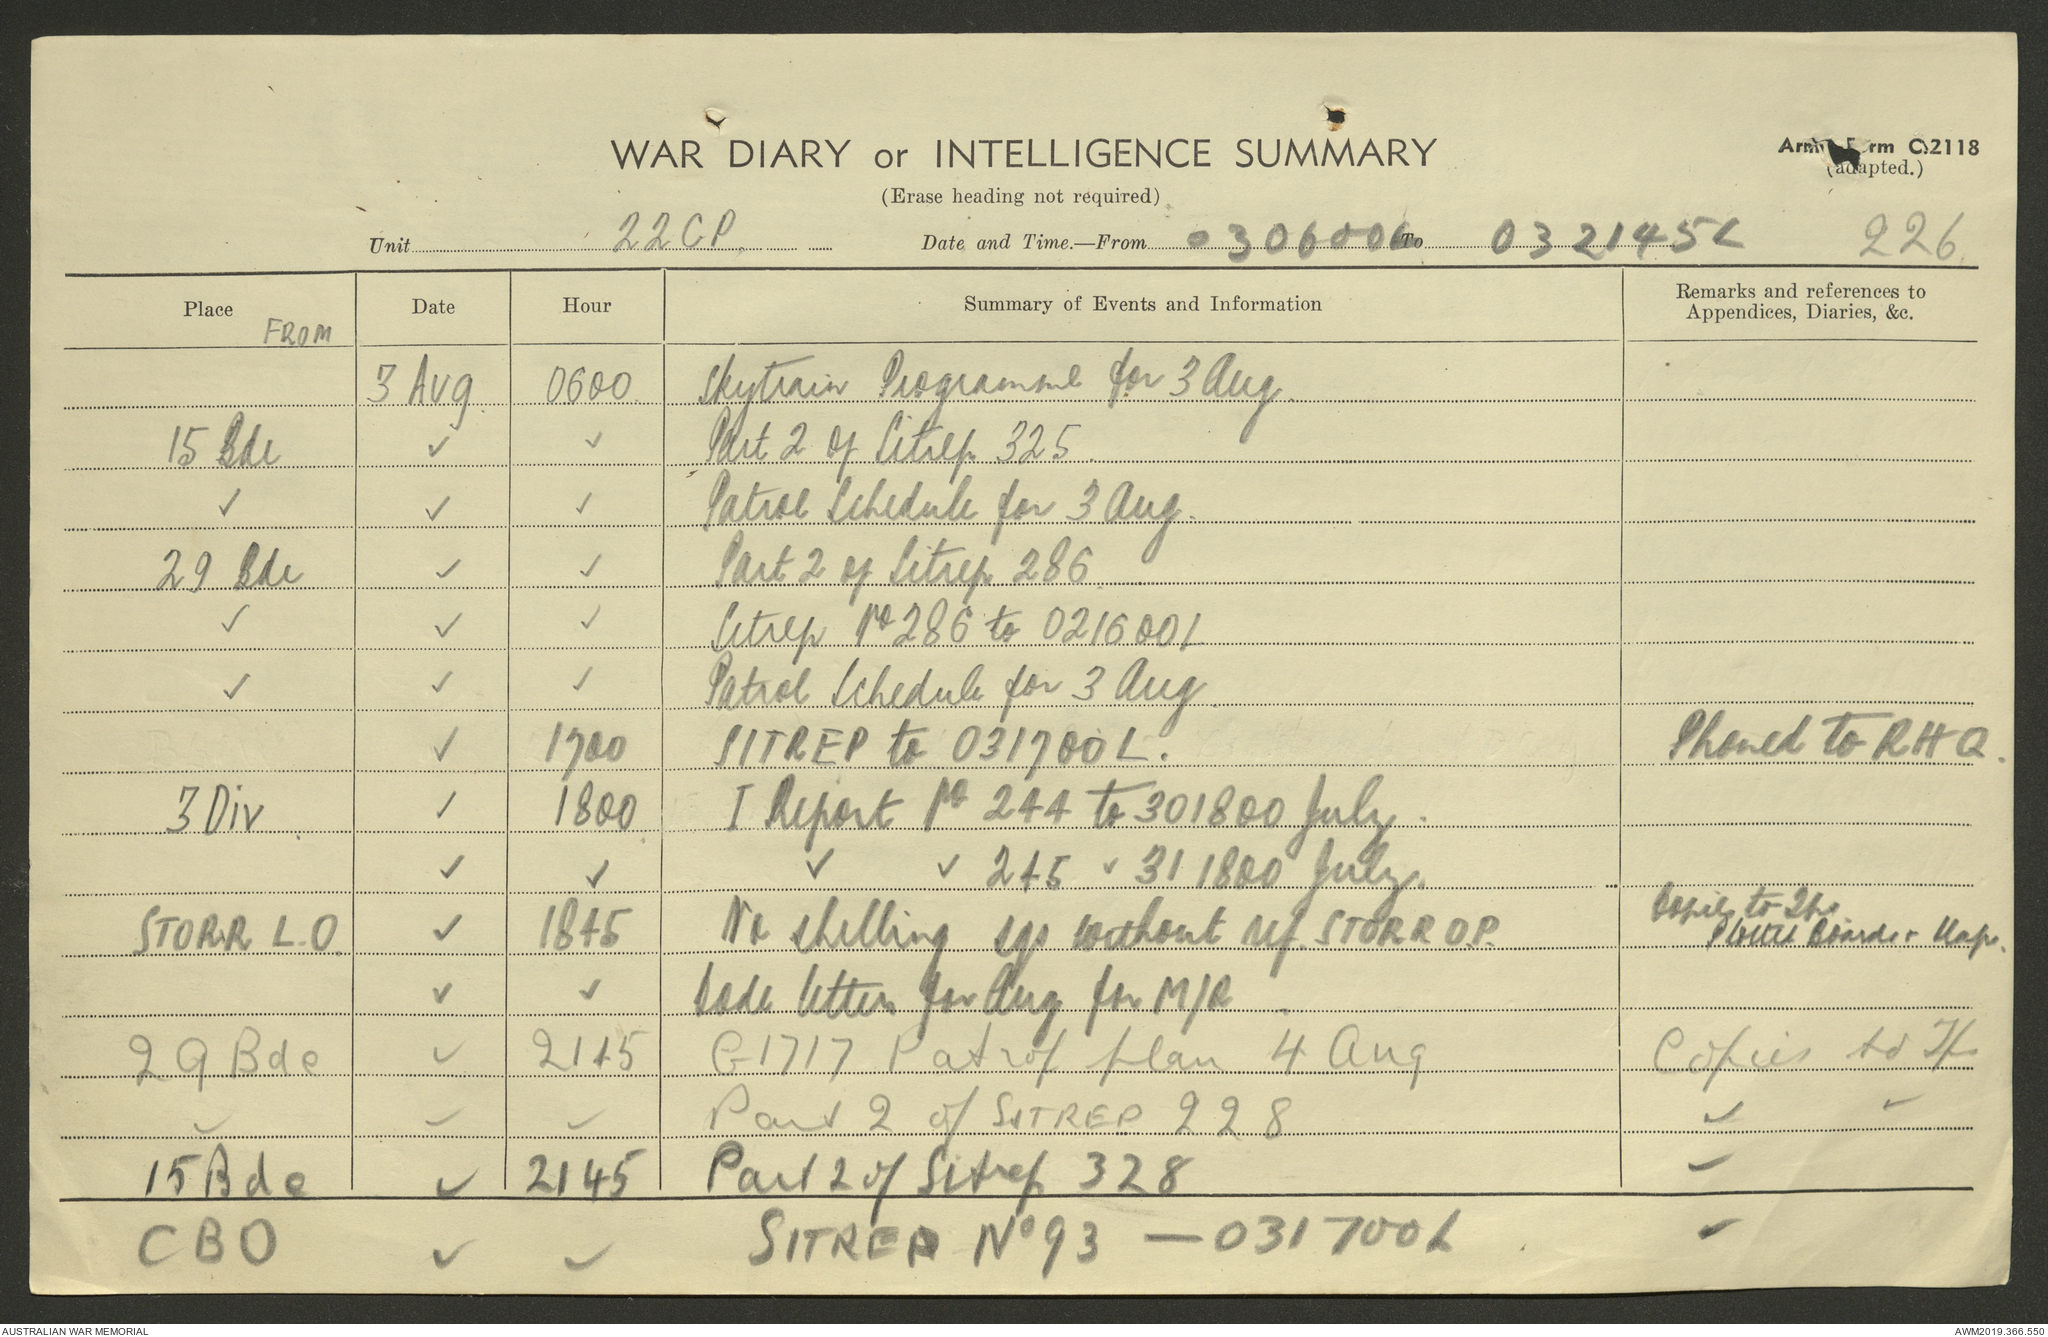 WAR DIARY or INTELLIGENCE SUMMARY
Army Form C.2118
(adapted.)
(Erase heading not required)
Unit 22 CP. Date and Time.—From 030600L To 032145L 226
Place FROM Date Hour Summary of Events and Information Remarks and references to
Appendices, Diaries, &c.
3 Aug 0600 Skytrain Programme for 3 Aug.
15 Bde ✓ ✓ Part 2 of Sitrep 325.
✓ ✓ ✓ Patrol Schedule for 3 Aug.
29 Bde ✓ ✓ Part 2 of Sitrep 286
✓ ✓ ✓ Sitrep No 286 to 021600L
✓ ✓ ✓ Patrol Schedule for 3 Aug.
✓ 1700 SITREP to 031700L. Phoned to RHQ.
3 Div ✓ 1800 I Report No 244 to 301800 July.
✓ ✓ ✓ ✓ 245 ✓ 311800 July.
STORR L.O. ✓ 1845 No shelling sgs without ref. STORR O.P. Copies to
Boards + Maps.
✓ ✓ Code letters for Aug for M/R
29 Bde ✓ 2145 G1717 Patrol plan 4 Aug Copies to
✓ ✓ ✓ Part 2 of SITREP 228 ✓ ✓
15 Bde ✓ 2145 Part 2 of Sitrep 328 ✓
CBO ✓ ✓ SITREP No 93 — 031700L ✓
AUSTRALIAN WAR MEMORIAL AWM2019.366.550